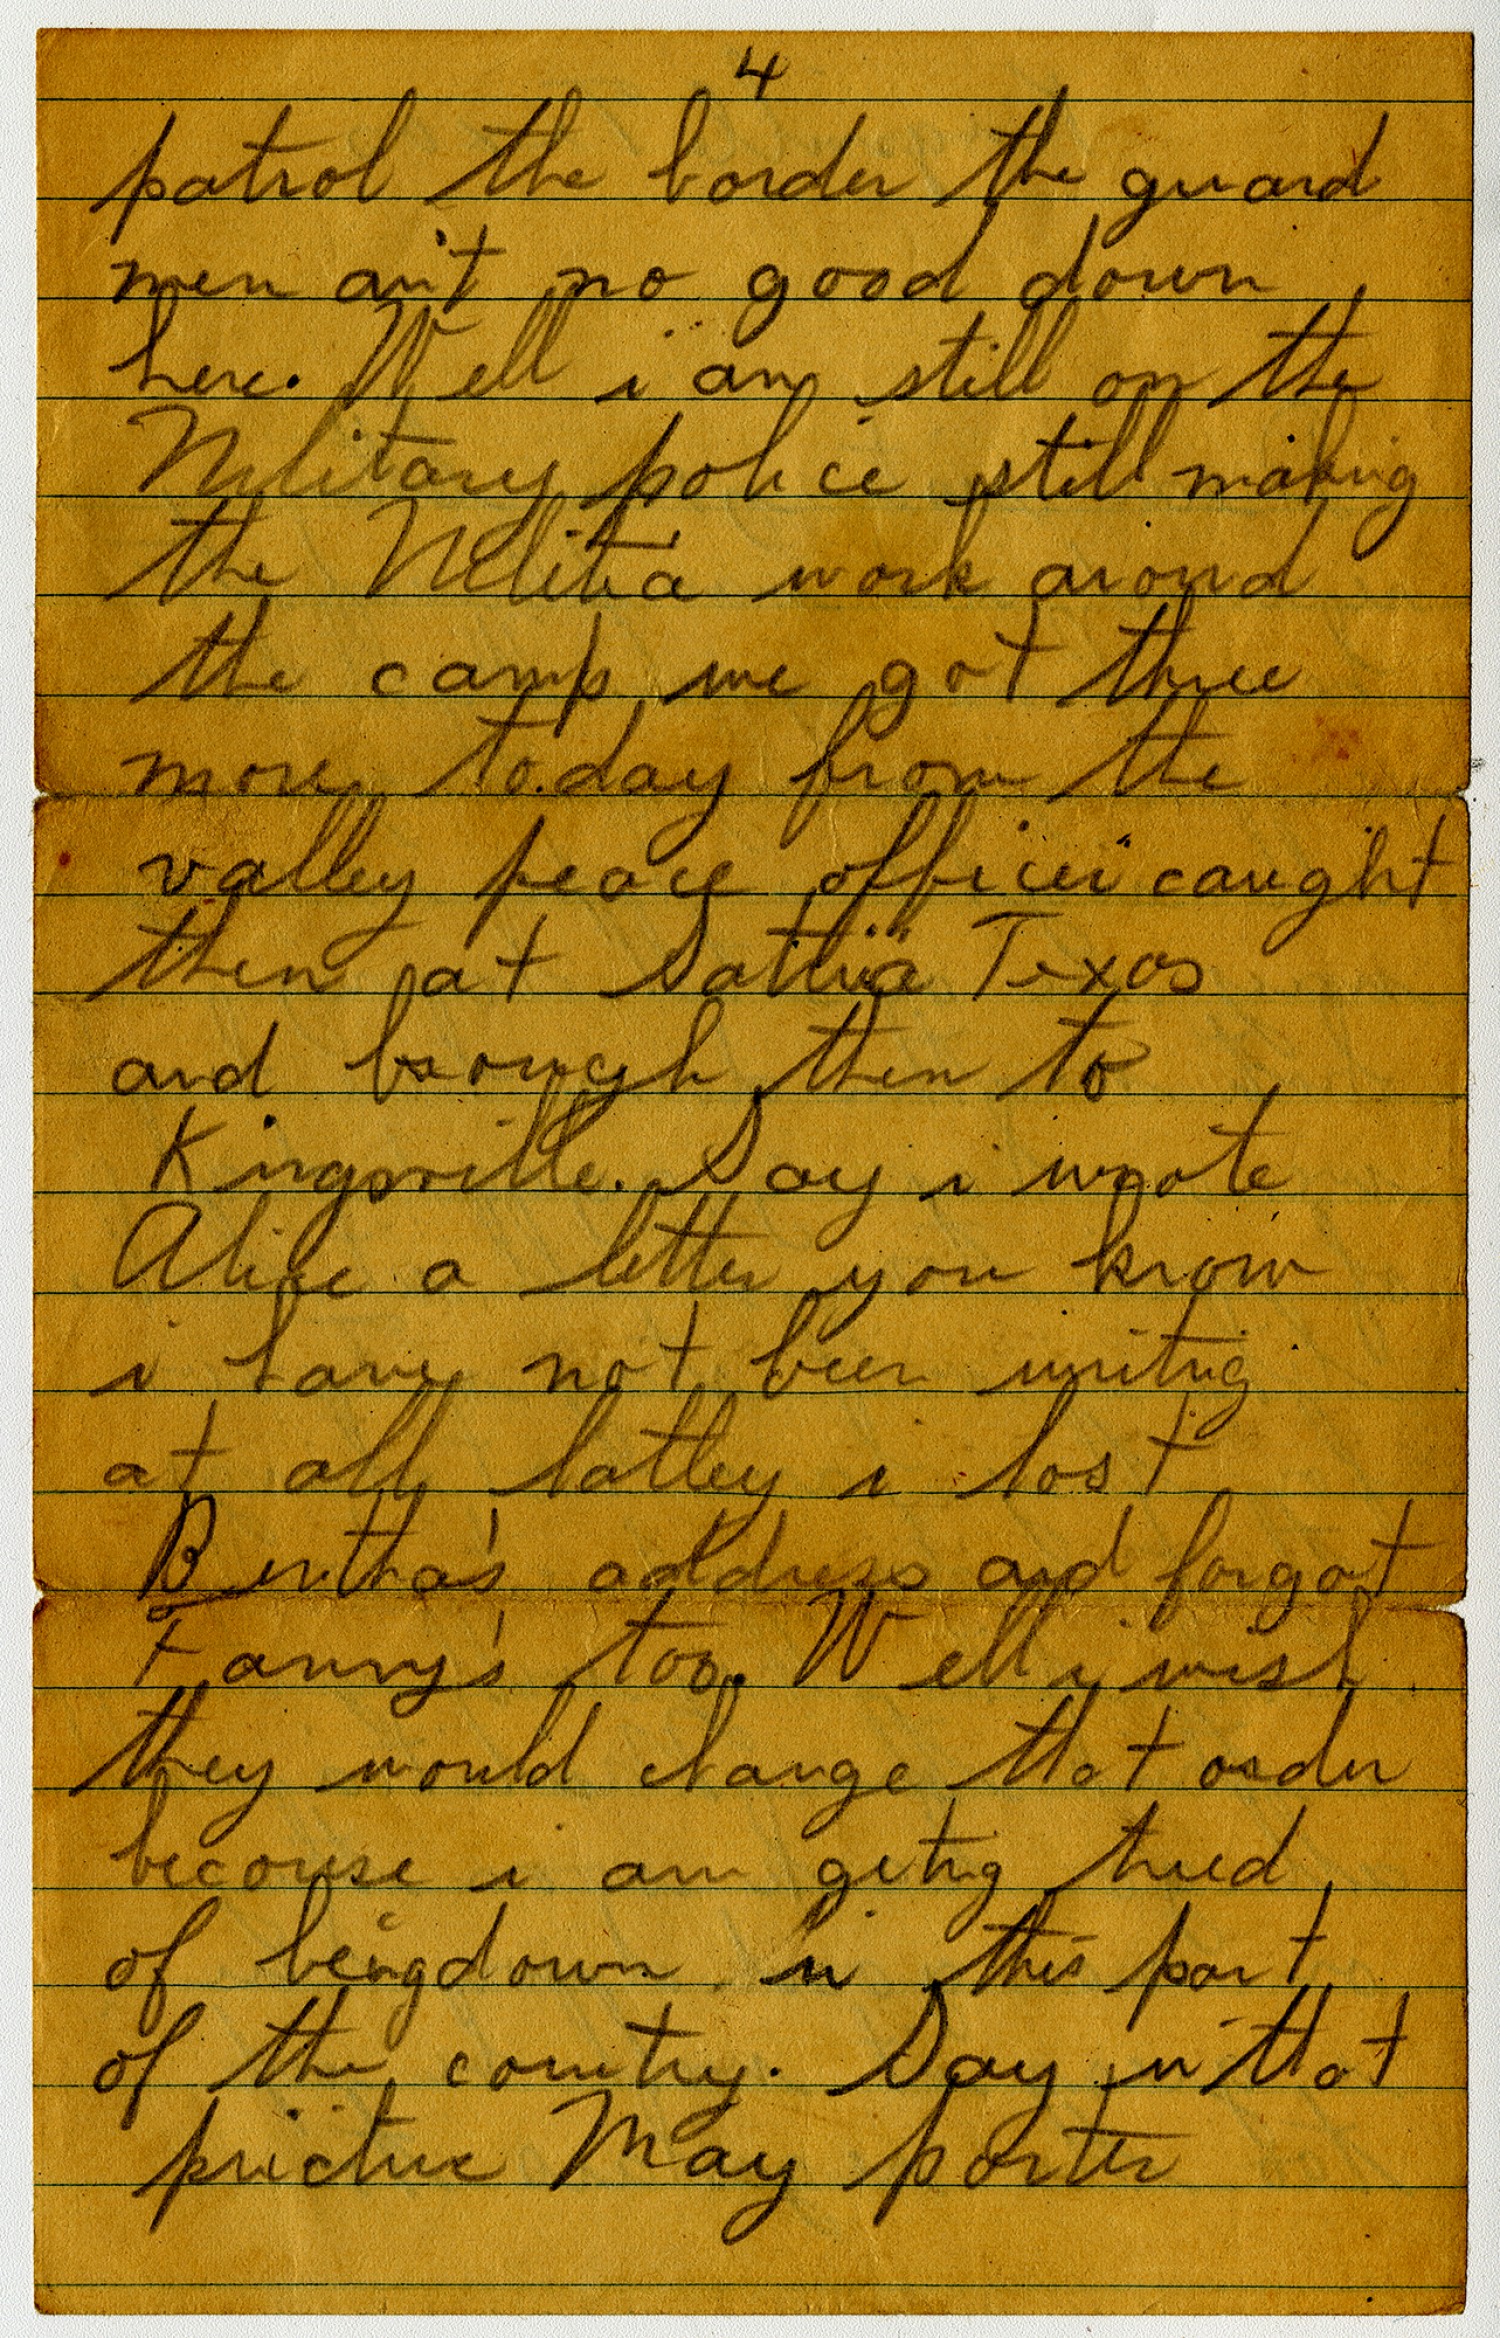 4
patrol the border the guard
men ain't no good down
here. Well i am still on the
Military police still making
the Militia work around
the camp we got three
more to.day from the
valley peace officer caught
then at Sattira Texas
and brough then to
Kingsville. Say i wrote
Alice a letter you know
i have not been writing
at all latley i lost
Bertha's address and forgot
Fanny's too. Well i wish
they would change that order
becouse i am geting tired
of being down in this part
of the country. Say in that
pricture May porter